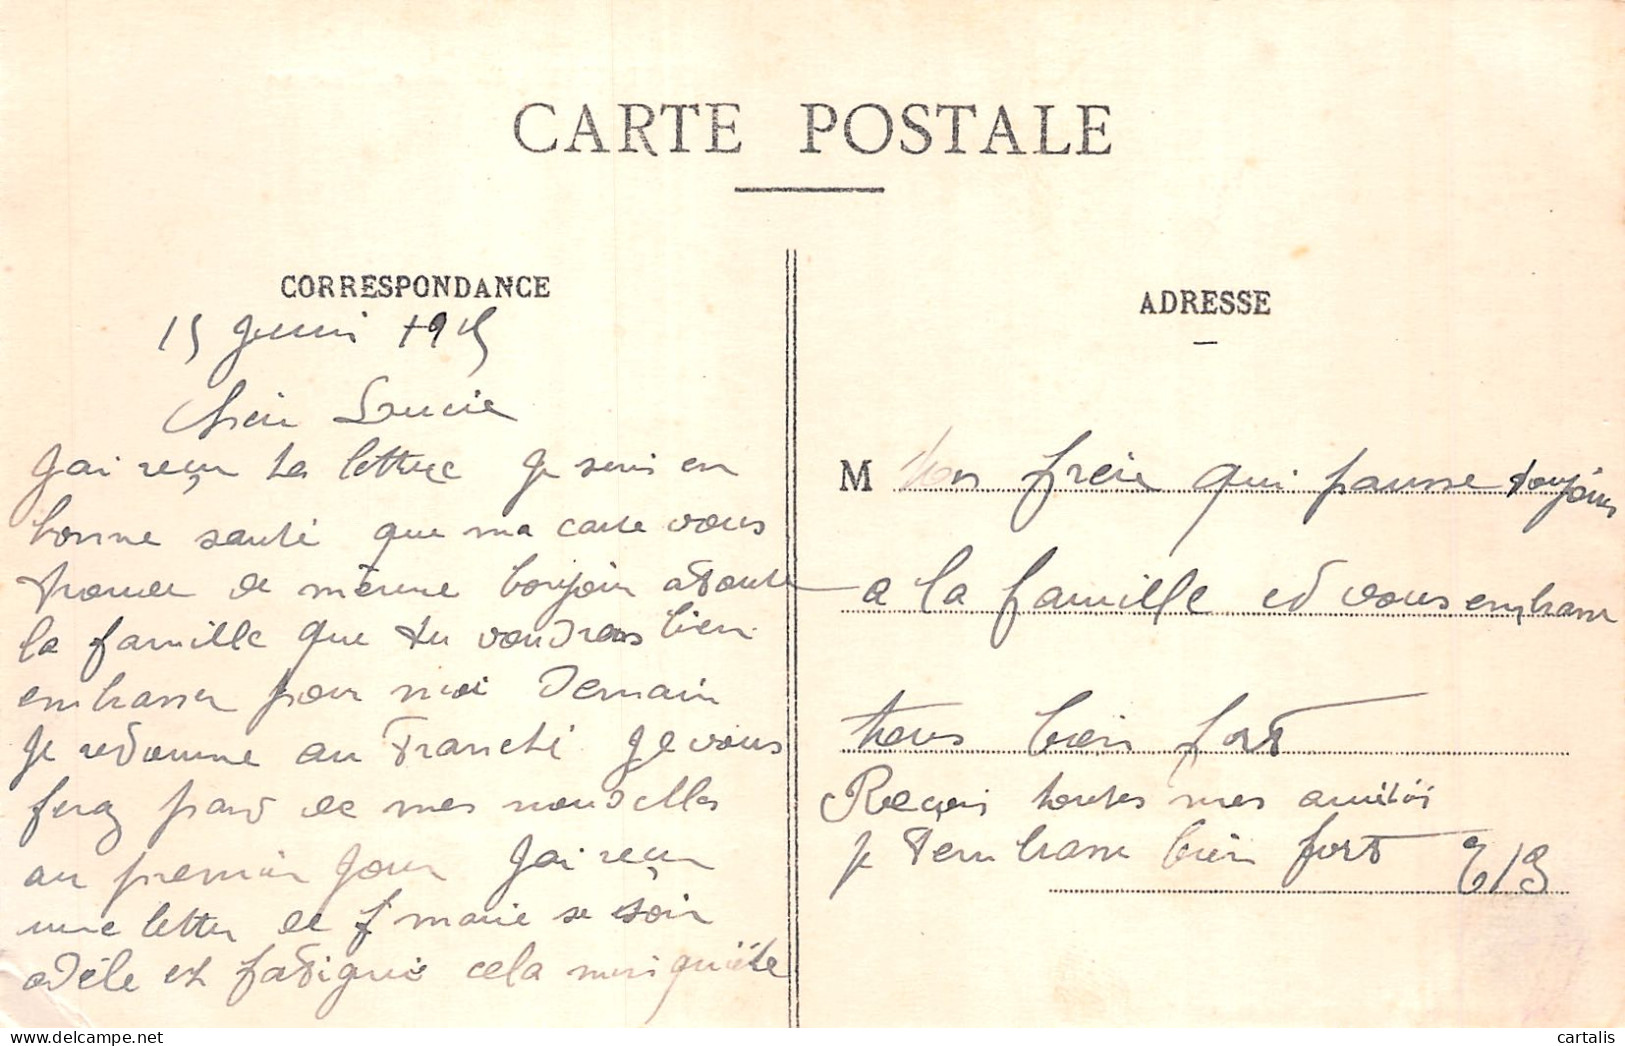 CARTE POSTALE
CORRESPONDANCE
15 1915
Lucie
J'ai reçu ta lettre Je suis en
bonne santé que ma carte vous
trouve de mème bonjoir a toute
la famille que tu voudras bien
embrasser pour moi Demain
Je redounne au tranché Je vous
feraz part de mes nouvelles
au premier jour J'ai reçu
une letter de f marie se soir
adèle et fatigué cela m'inquiète
ADRESSE
M ton frère qui pansse toujours
a la famille et vous embrasse
tous bien fort
Reçois toutes mes amitiés
je t'embrasse bien fort
cartalis